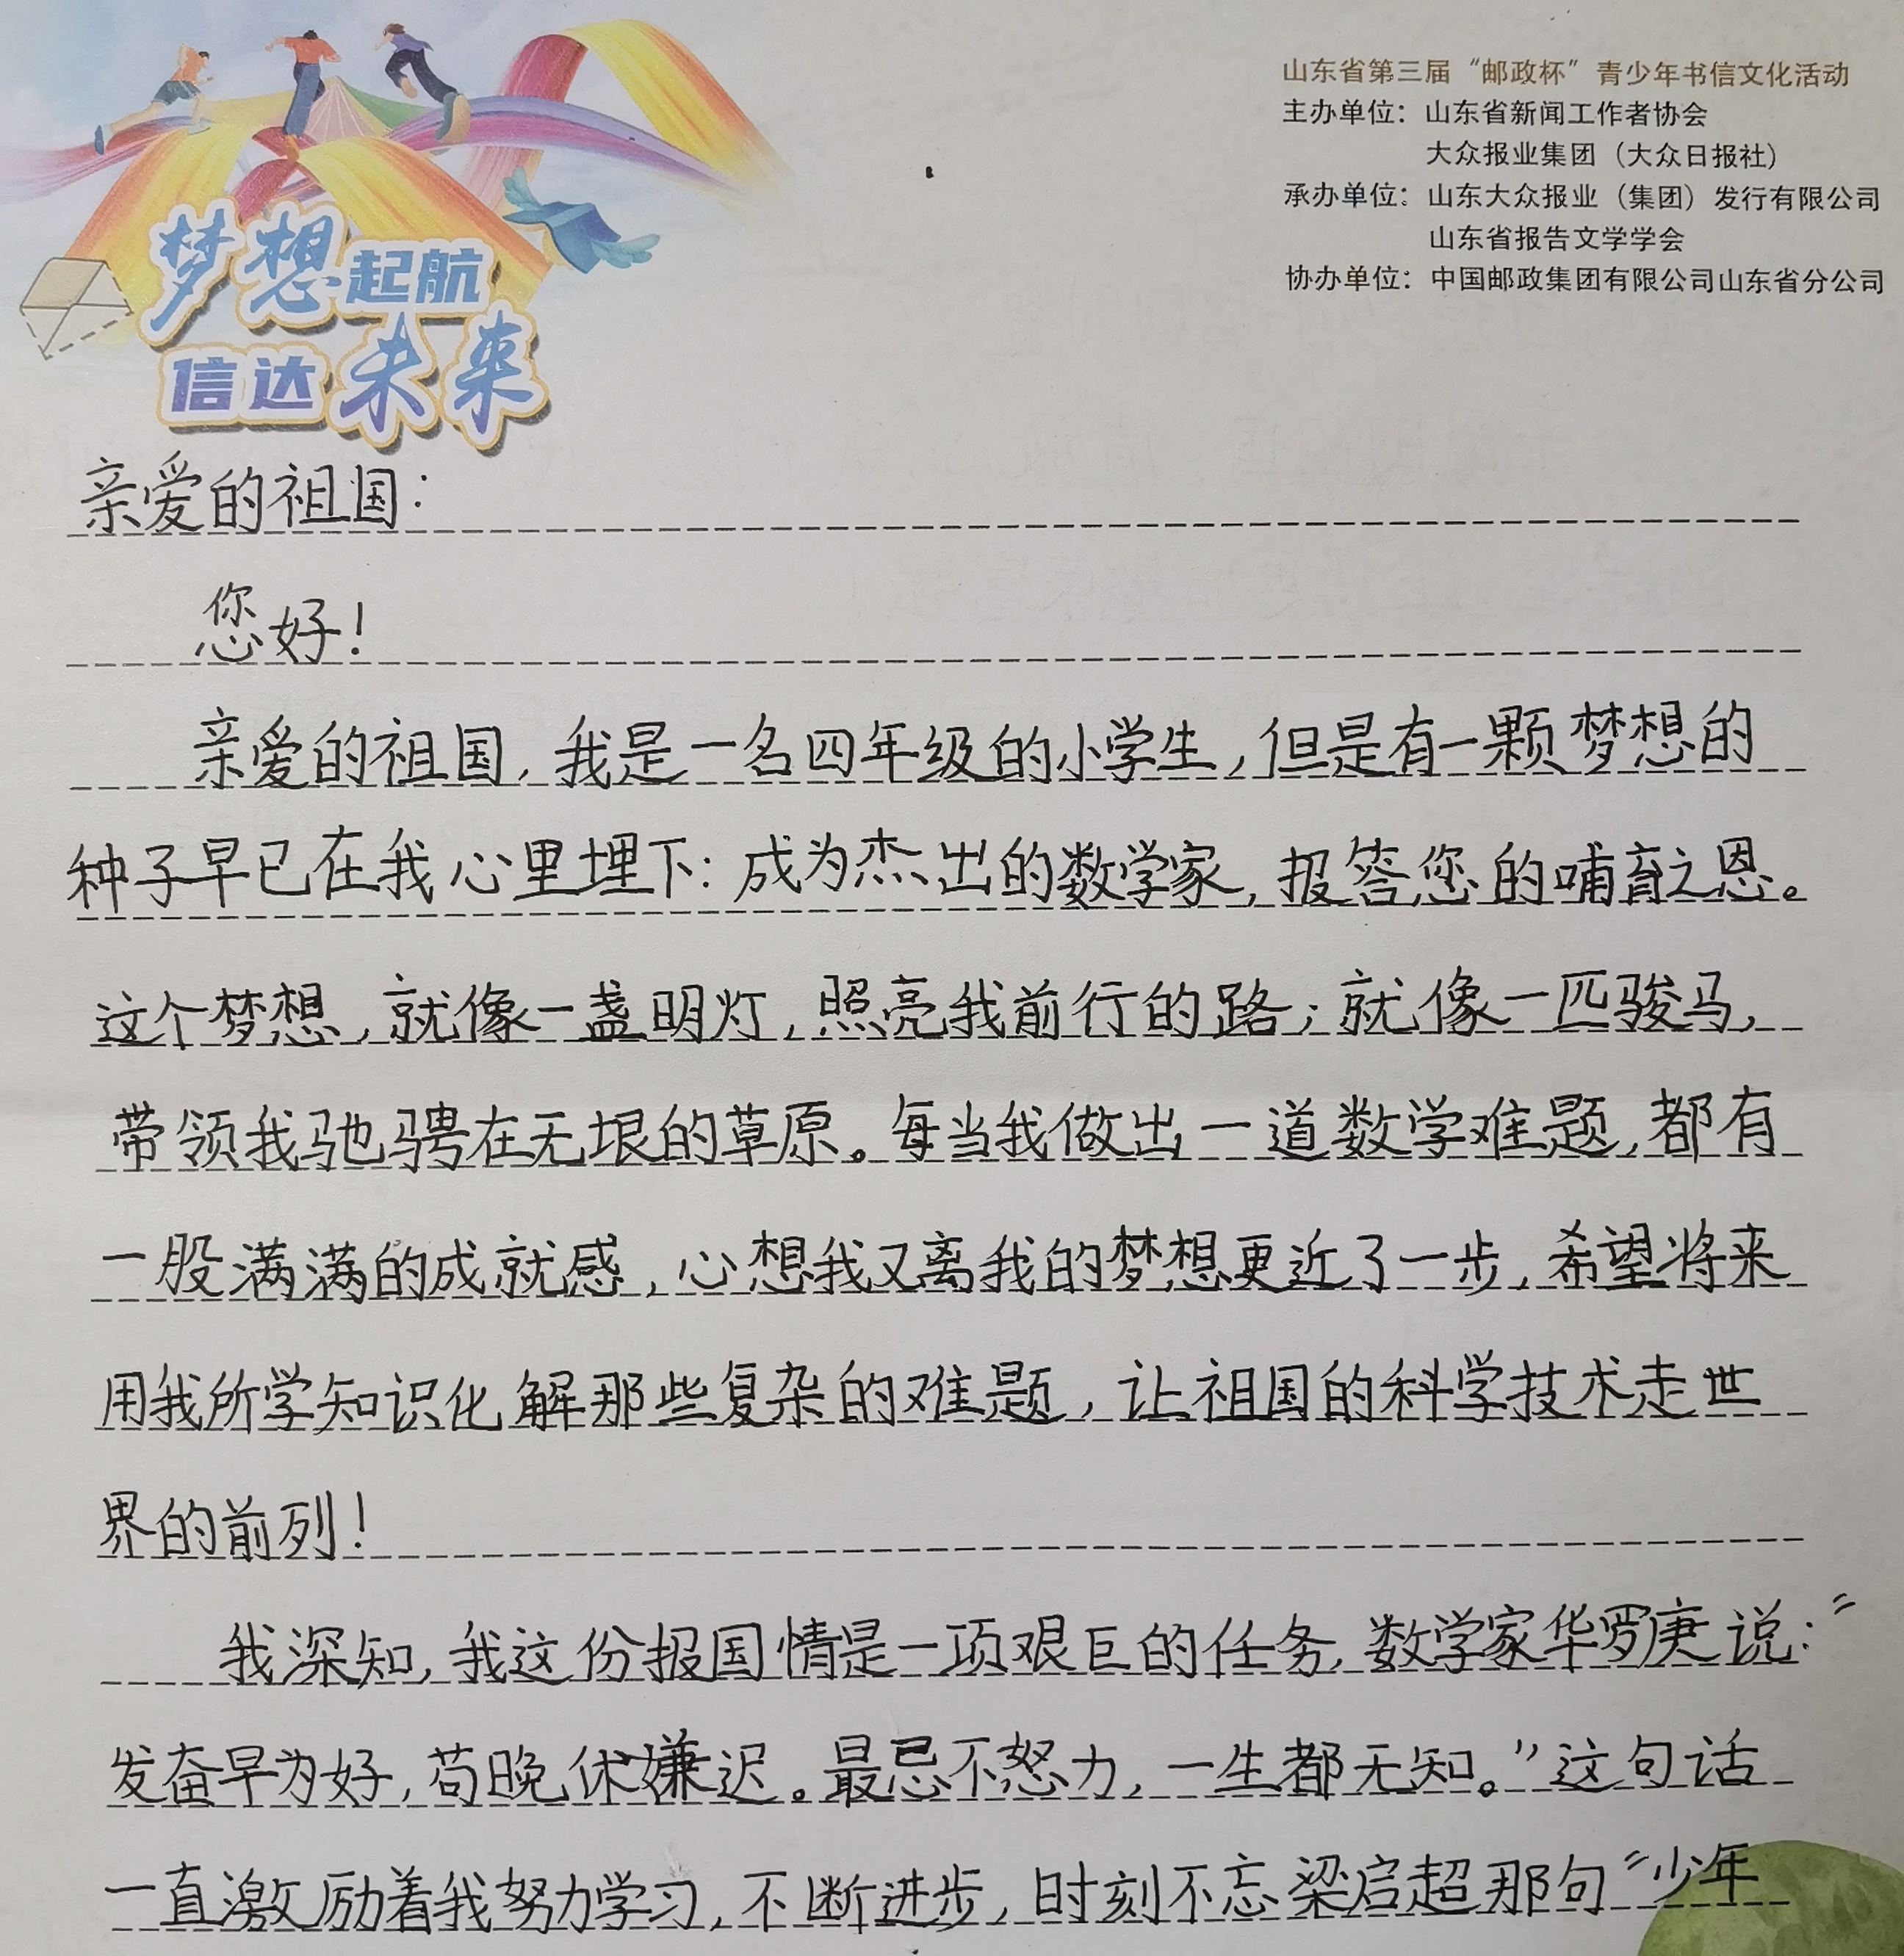 梦想起航
信达未来
山东省第三届“邮政杯”青少年书信文化活动
主办单位：山东省新闻工作者协会
大众报业集团（大众日报社）
承办单位：山东大众报业（集团）发行有限公司
山东省报告文学学会
协办单位：中国邮政集团有限公司山东省分公司
亲爱的祖国：
您好！
亲爱的祖国，我是一名四年级的小学生，但是有一颗梦想的
种子早已在我心里埋下：成为杰出的数学家，报答您的哺育之恩。
这个梦想，就像一盏明灯，照亮我前行的路；就像一匹骏马，
带领我驰骋在无垠的草原。每当我做出一道数学难题，都有
一股满满的成就感，心想我又离我的梦想更近了一步，希望将来
用我所学知识化解那些复杂的难题，让祖国的科学技术走世
界的前列！
我深知，我这份报国情是一项艰巨的任务，数学家华罗庚说：“
发奋早为好，苟晚休嫌迟。最忌不怒力，一生都无知。”这句话
一直激励着我努力学习，不断进步，时刻不忘梁启超那句“少年